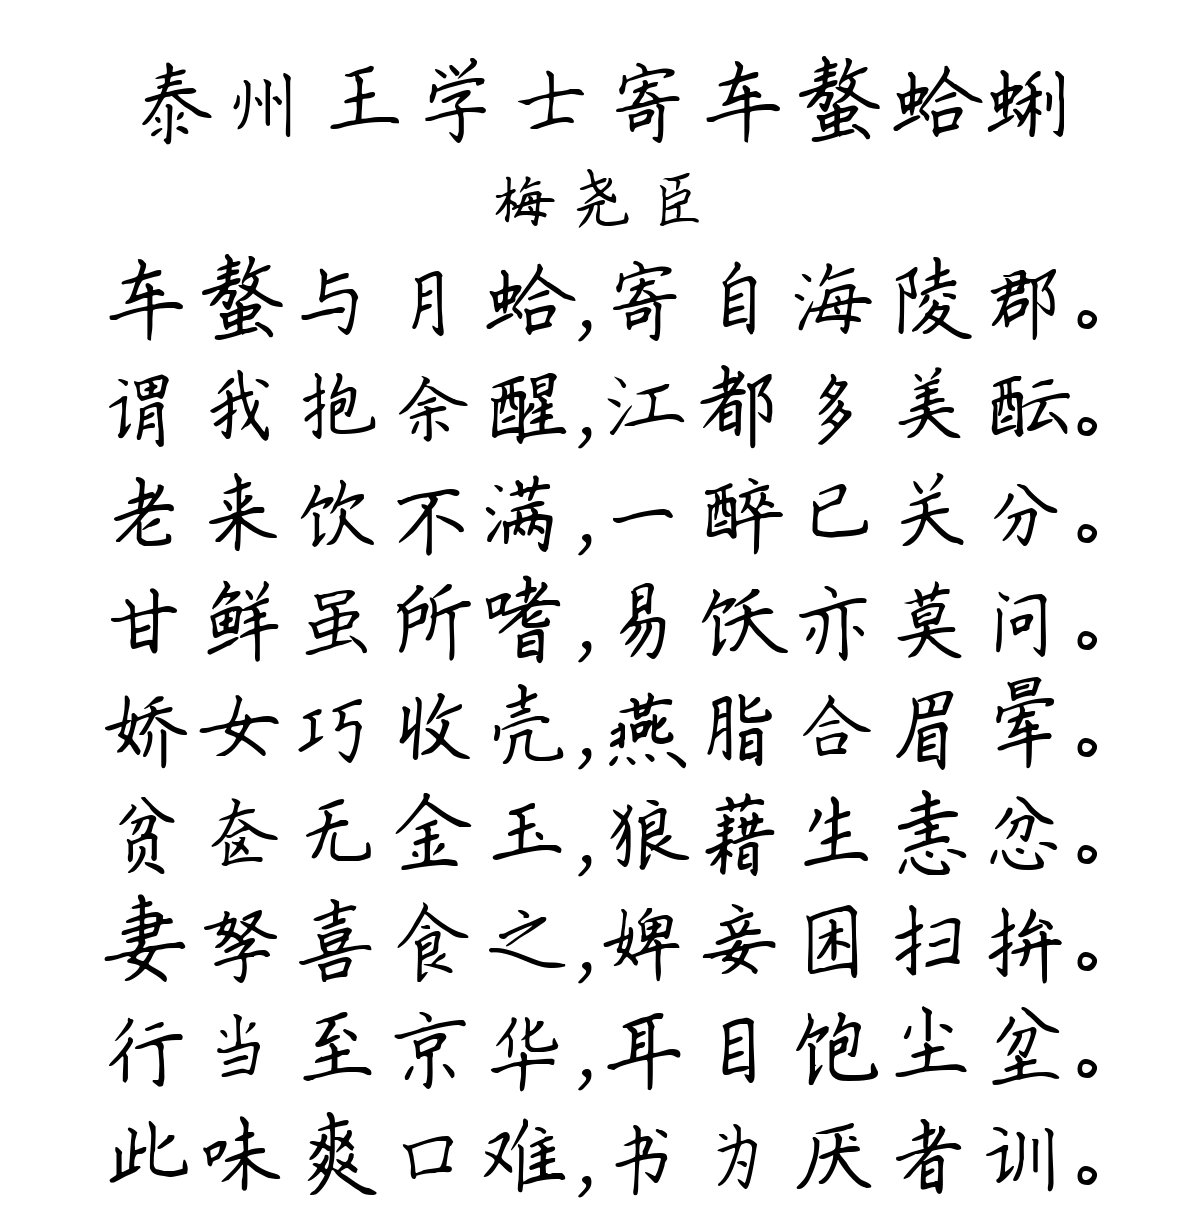 泰州王学士寄车螯蛤蜊
梅尧臣
车螯与月蛤,寄自海陵郡。
谓我抱余醒,江都多美酝。
老来饮不满,一醉已关分。
甘鲜虽所嗜,易饫亦莫问。
娇女巧收壳,燕脂合眉晕。
贫奁无金玉,狼藉生恚忿。
妻孥喜食之,婢妾困扫拚。
行当至京华,耳目饱尘坌。
此味爽口难,书为厌者训。